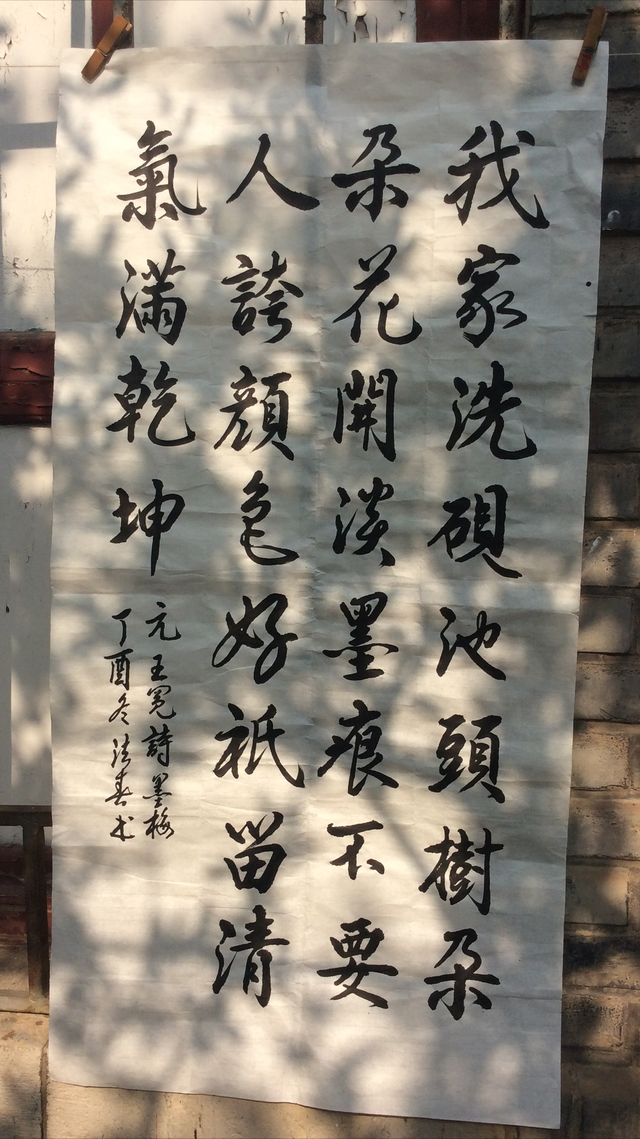 我家洗硯池頭樹朵
朵花開淡墨痕不要
人誇顔色好祇留清
氣滿乾坤
元王冕詩墨梅
丁酉冬法春书